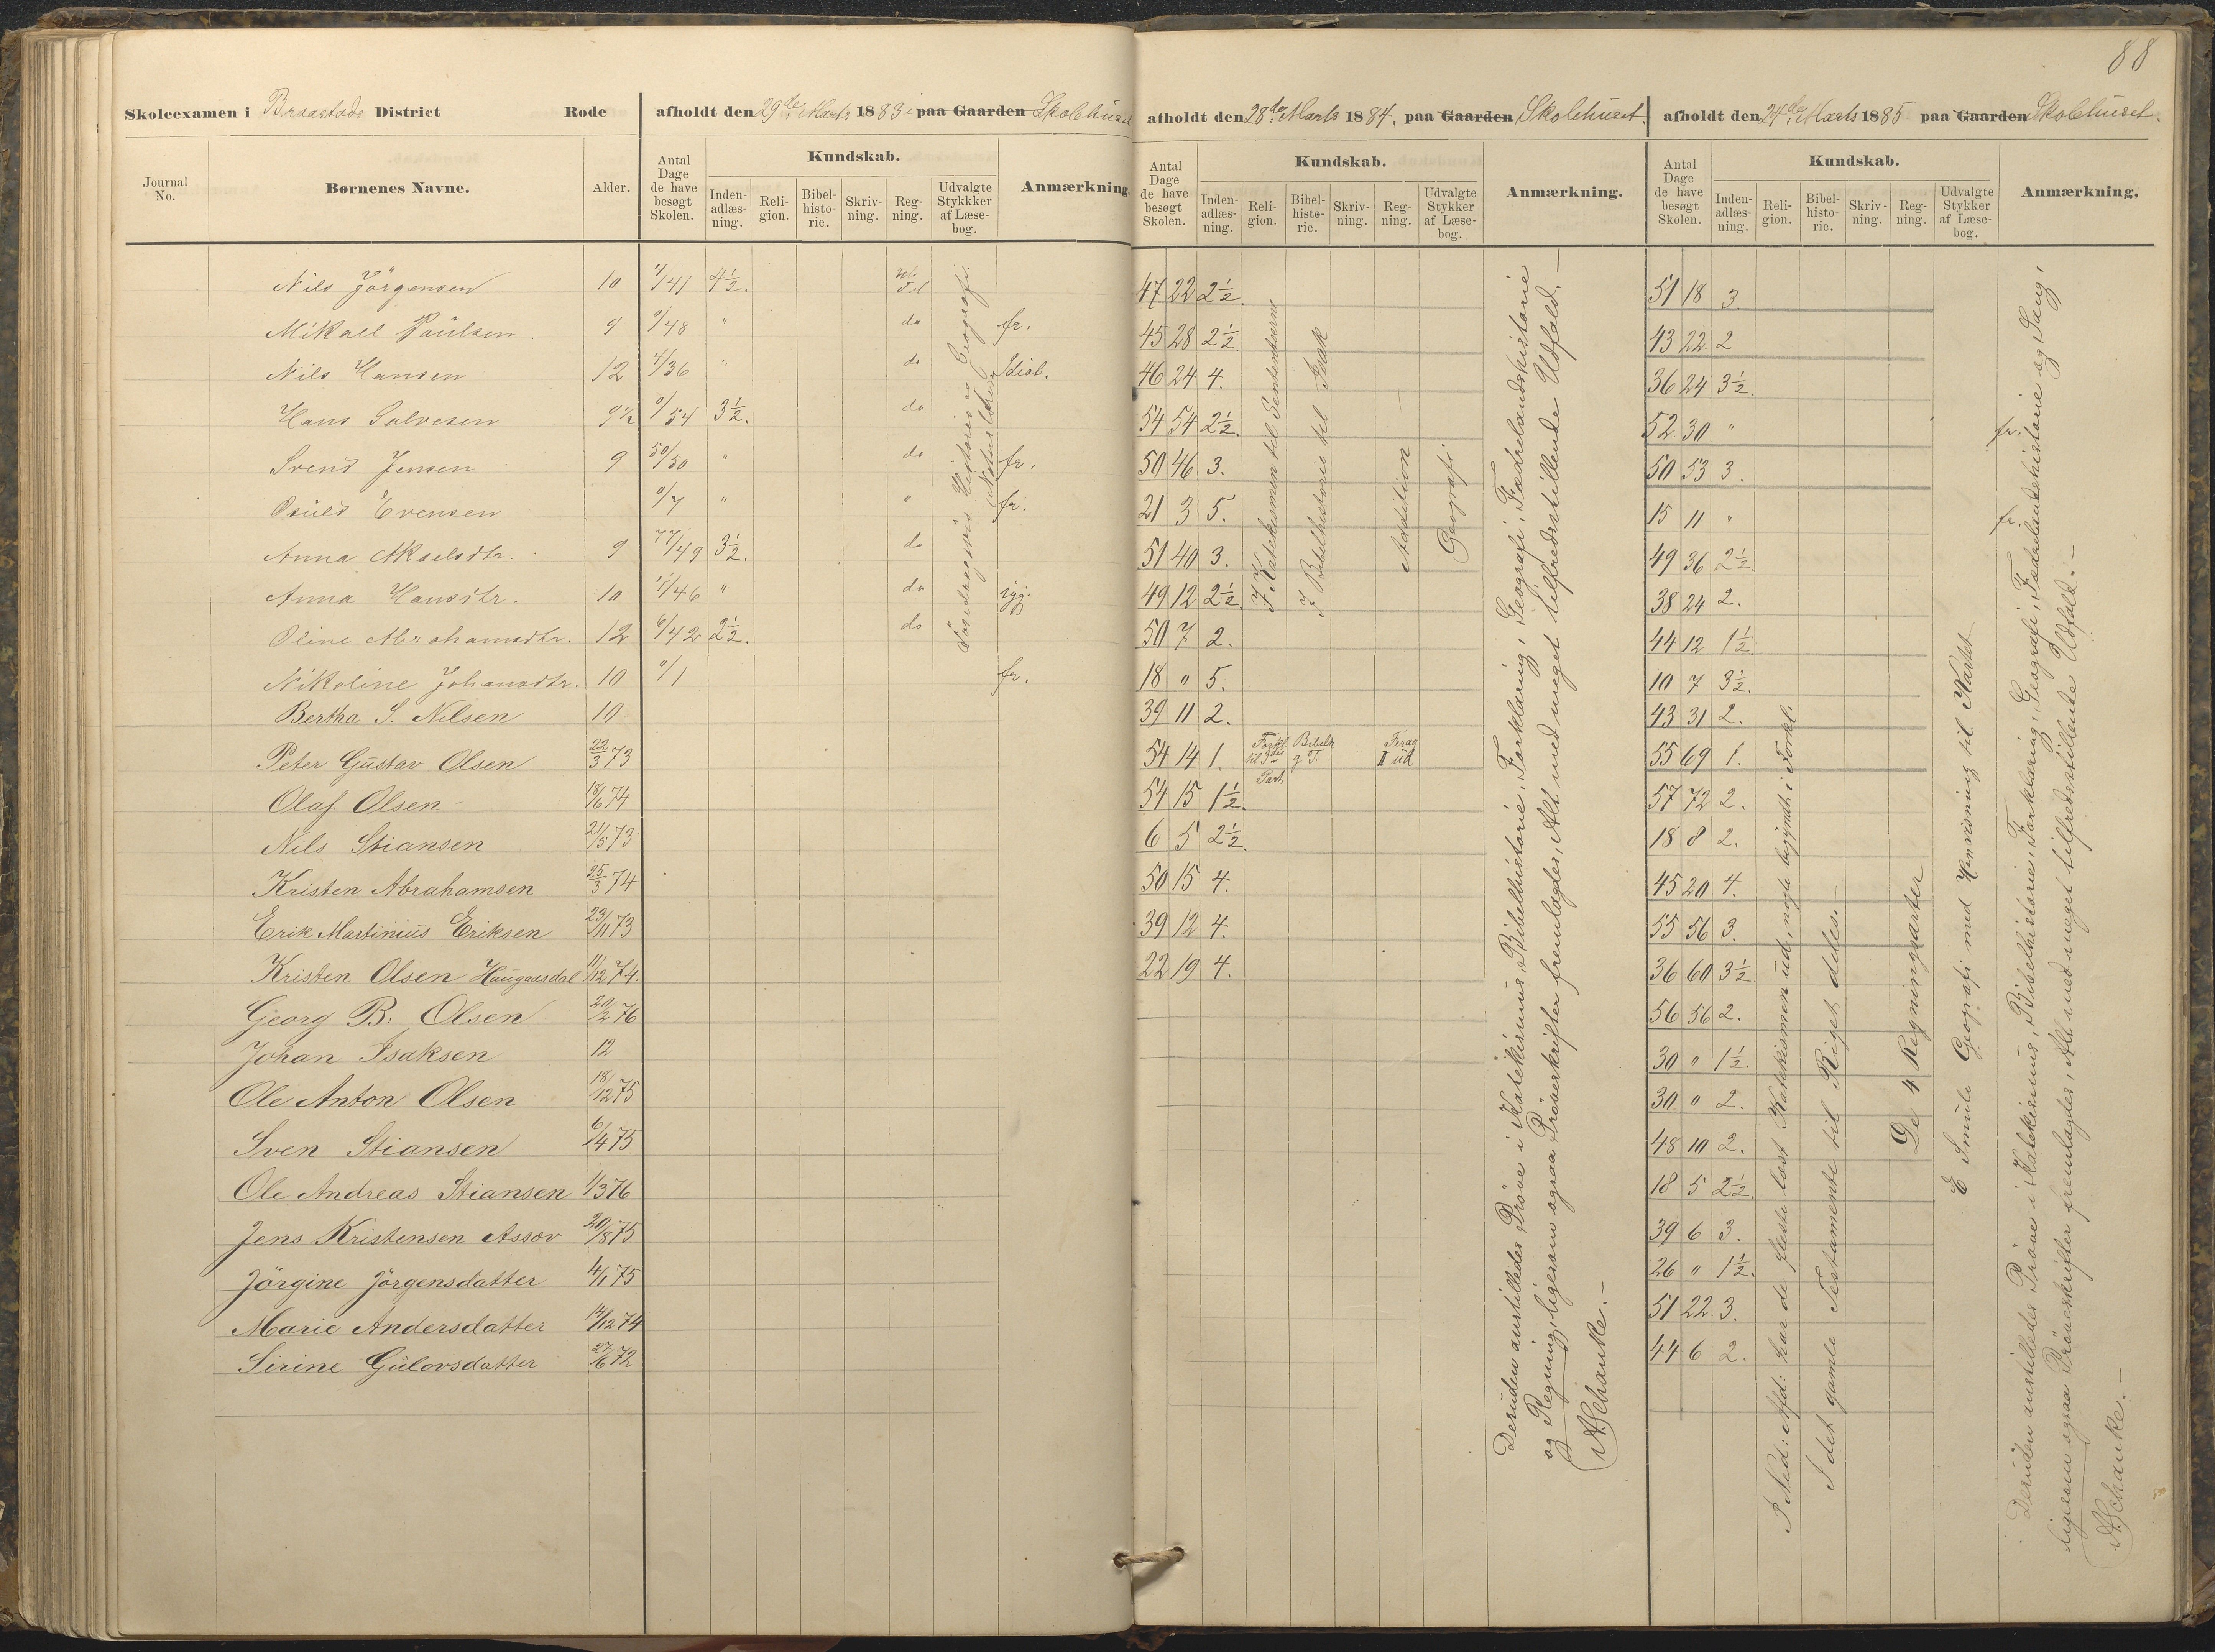 88
Skoleexamen i Braastads District Rode afholdt den 29de Marts 1883 paa Gaarden Skolehuset
afholdt den 28de Marts 1884, paa Gaarden Skolehuset.
afholdt den 24de Marts 1885 paa Gaarden Skolehuset.
Journal No. Børnenes Navne. Alder. Antal Dage de have besøgt Skolen. Kundskab. Indenadlæsning. Religion. Bibelhistorie. Skrivning. Regning. Udvalgte Stykkker af Læsebog. Anmærkning.
Antal Dage de have besøgt Skolen. Kundskab. Indenadlæsning. Religion. Bibelhistørie. Skrivning. Regning. Udvalgte Stykker af Læsebog. Anmærkning.
Antal Dage de have besøgt Skolen. Kundskab. Indenadlæsning. Religion. Bibelhistorie. Skrivning. Regning. Udvalgte Stykker af Læsebog. Anmærkning.
Nils Jörgensen 10 /41 4½. 47 22 2½. 51 18 3
Mikael Paulsen 9 0/48 " do fr. 45 28 2½ 43 22. 2
Nils Hansen 12 4/36 " do Idiot. 46 24 4. 36 24 3½.
Hans Salvesen 9½ 0/54 3½. do 54 54 2½. 52. 30 " fr.
Svend Jensen 9 50/50 " do fr. 50 46 3. 50 53 3.
Osuld Evensen 0/7 " " fr. 21 3 5. 15 11 " fr.
Anna Akselsdtr. 9 77/49 3½. do 51 40 3. 49 36 2½.
Anna Hansdtr. 10 4/46 " do syg. 49 12 2½. 38 24 2.
Oline Abrahamsdtr. 12 6/42 2½. do 50 7 2. 44 12 1½
Nikoline Johansdtr. 10 0/1 fr. 18 " 5. 10 7 3½.
Bertha S. Nilsen 10 39 11 2. 43 31 2.
Peter Gustav Olsen 22/3 73 54 14 1. Forkl. til 3die Part. Bibelh g. T. I ud 55 69 1.
Olaf Olsen 18/6 74 54 15 1½. 57 72 2.
Nils Stiansen 21/5 73 6 5 2½. 18 8 2.
Kristen Abrahamsen 25/3 74 50 15 4. 45 20 4.
Erik Martinius Eriksen 23/11 73 39 12 4. 55 56 3.
Kristen Olsen Haugaasdal 11/12 74. 22 19 4. 36 60 3½
Georg B: Olsen 20/2 76 56 56 2.
Johan Isaksen 12 30 " 1½.
Ole Anton Olsen 18/12 75 30 " 2.
Sven Stiansen 6/4 75 48 10 2.
Ole Andreas Stiansen 1/3 76 18 5 2½.
Jens Kristensen Assev 20/8 75 39 6 3.
Jörgine Jörgensdatter 4/1 75 26 " 1½.
Marie Andersdatter 14/12 74 51 22. 3.
Sirine Gulovsdatter 27/6 72 44 6 2.
Foredragsvis Historie og Geografi.
Naturlære
I Katekismen til Sententserne
I Bibelhistorie til Isak
Addition
Geografi
Desuden anstilledes Prøve i Katekismus, Bibelhistorie, Forklaring, Geografi, Fædrelandshistorie
og Regning, ligesom ogsaa Prøveskrifter fremlagdes, Alt med meget tilfredsstillende Udfald. —
A Schanke. —
I Ned: Afd: har de fleste læst Katekismen ud, nogle begyndt i Forkl.
I det gamle Testamente til Riget deles.
De 4 Regningsarter
E Smule Geografi med Henvisning til Kartet
Desuden anstilledes Prøve i Katekismus, Bibelhistorie, Forklaring, Geografi, Fædrelandshistorie og Sang,
ligesom ogsaa Prøveskrifter fremlagdes, Alt med meget tilfredsstillende Udfald. —
A Schanke. —